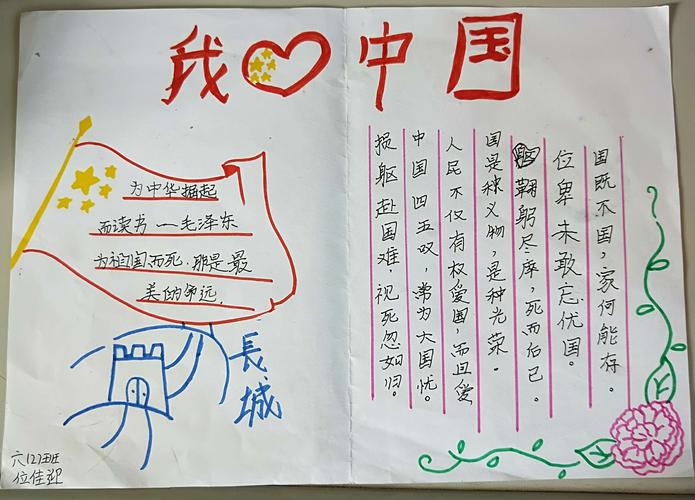 我中国
为中华掘起
而读书—毛泽东
为祖国而死,那是最
美的命远.
長城
六(2)班
位佳迎
损躯赴国难,视死忽如归。
中国四五叹,常为大国忧。
人民不仅有权爱国,而且爱
国是种义物,是种光荣。
鞠躬尽瘁,死而后已。
位卑未敢忘优国。
国既不国,家何能存。